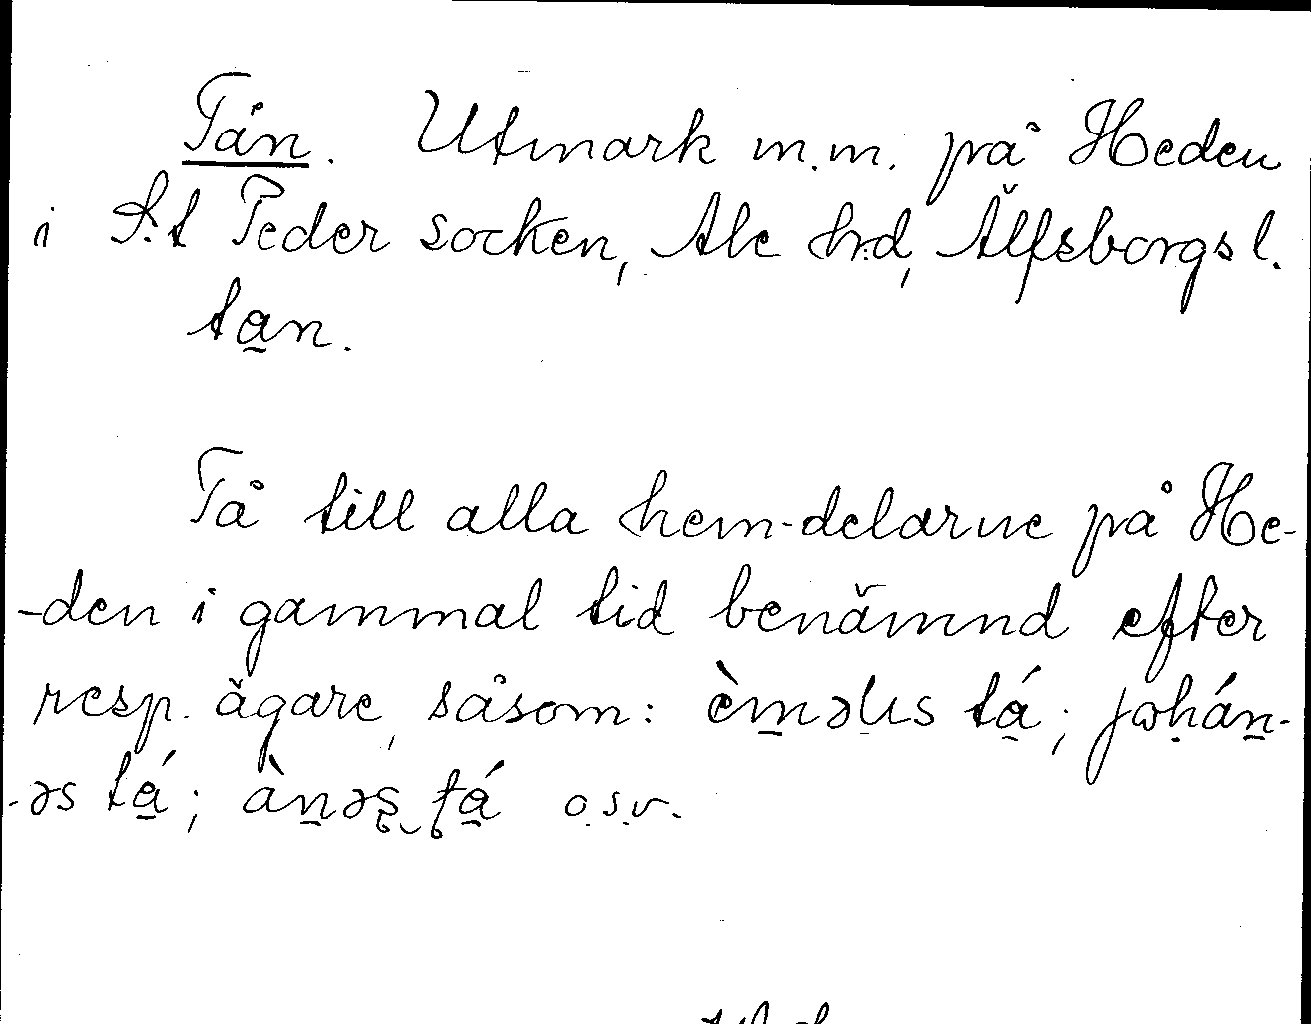 Tån. Utmark m.m. på Heden
i S:t Peder socken, Ale hrd, Älfsborgs l.
ta̱n.
Tå till alla hem-delarne på He-
-den i gammal tid benämnd efter
resp. ägare, såsom: èm̱əlıs tá̱; joḥáṉ-
-əs tá̱; àṉəʂ ʈá̱ o.s.v.